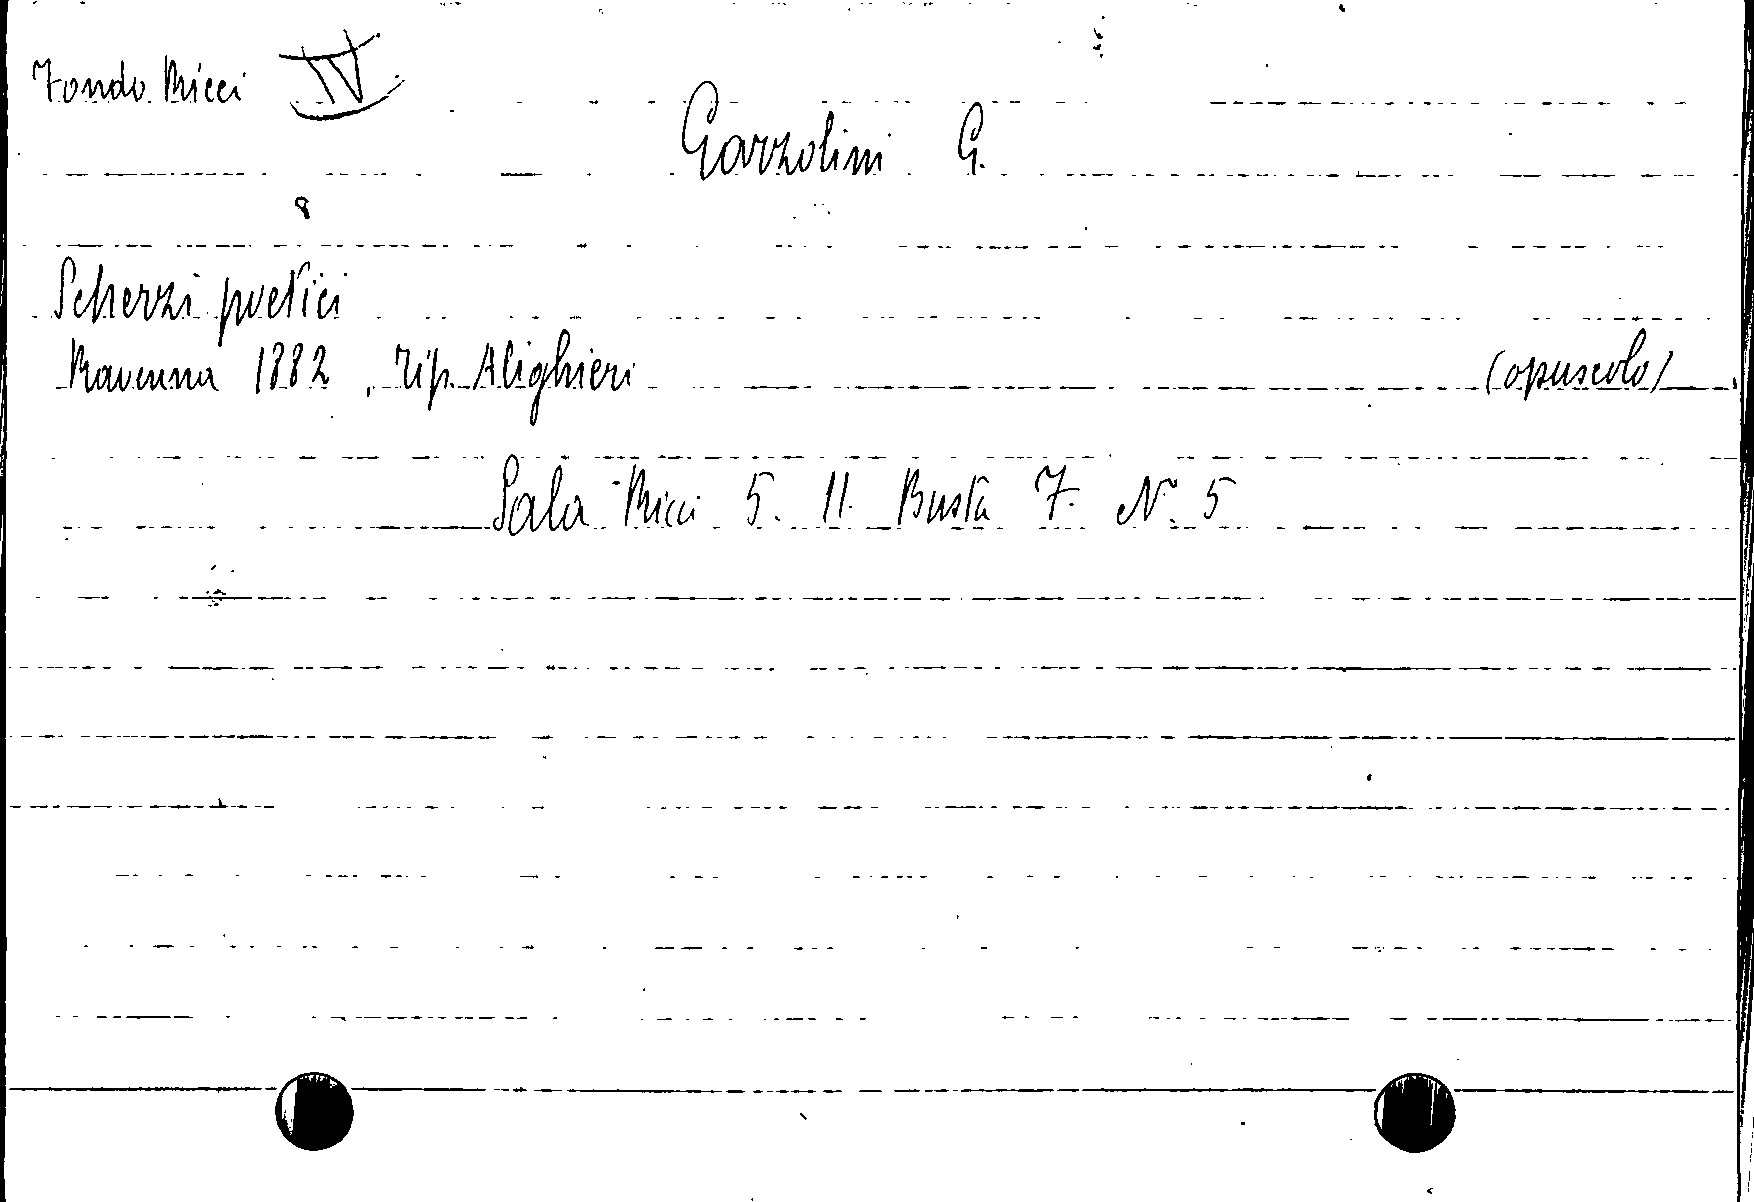 Fondo Ricci IV
Garzolini G.
8
Scherzi poetici
Ravenna 1882, Tip. Alighieri (opuscolo)
Sala Ricci 5. 11. Busta 7. N. 5